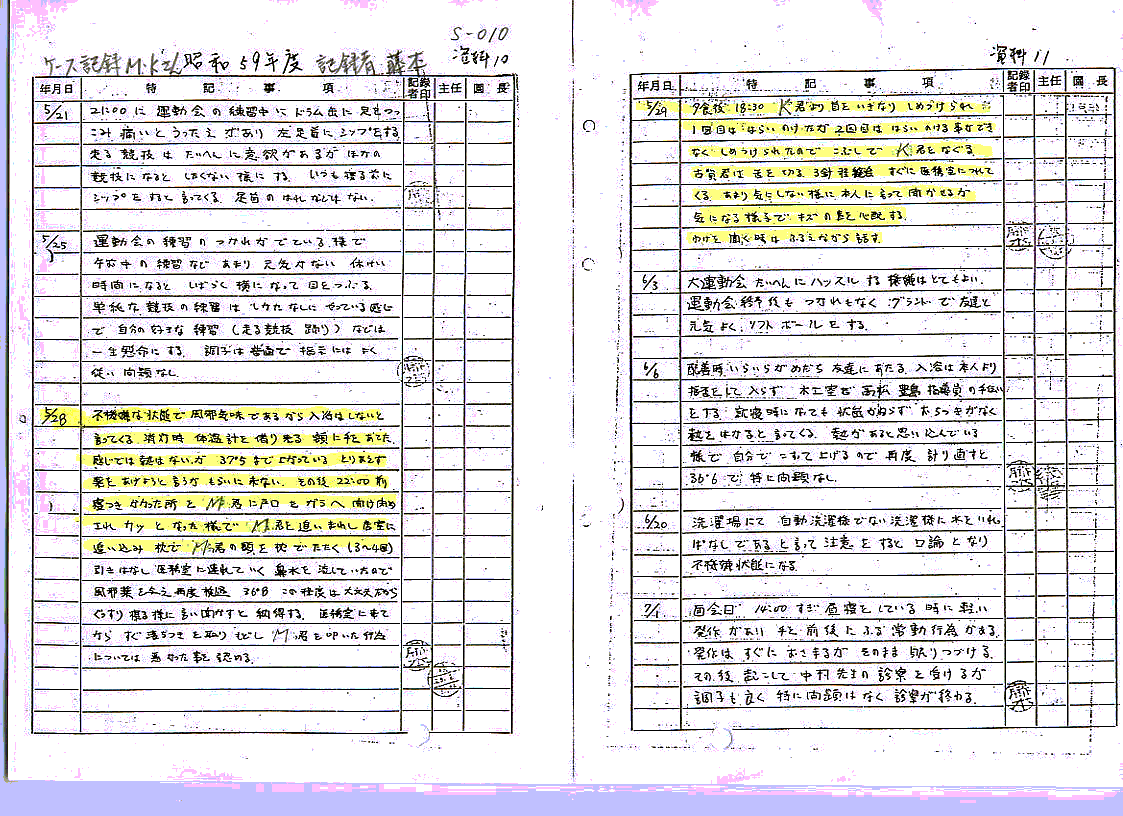 S-010
ケース記録 M.Kさん 昭和59年度 記録者 藤本 資料10
年月日 特記事項 記録者印 主任 園長
5/21 21:00に 運動会の練習中に ドラム缶に足をつっ
こみ 痛いとうったえがあり 左足首にシップをする
走る競技は たいへんに意欲があるが ほかの
競技になると しなくない様にする. いつも寝る前に
シップをすると言ってくる. 足首のはれなどはない.
5/25 運動会の練習のつかれがでている様で
午前中の練習など あまり元気がない 休けい
時間になると しばらく横になって目をつぶる.
単純な競技の練習は しかたなしにやっている感じ
で 自分の好きな練習 (走る競技 踊り) などは
一生懸命にする. 調子は普通で 指示にはよく
従い 問題なし.
5/28 不機嫌な状態で 風邪気味であるから入浴はしないと
言ってくる. 消灯時 体温計を借り来る 額に手をあてた
感じでは熱はないが 37°5まで上がっている とりあえず
薬をあげようと言うが もらいに来ない. その後 22:00前
寝つきかかった所を M君に戸口を
カッとなった様で M君を追いまわし居室に
追い込み 枕で M君の頭を枕でたたく (3〜4回)
引きはなし 医務室に連れていく 鼻水を流していたので
風邪薬を与え再度検温 36°8 この程度は大丈夫だから
ゆっくり寝る様に言い聞かすと 納得する. 医務室に来て
から すぐ落ちつきを取りもどし M君を叩いた行為
については 悪かった事を認める.
資料11
年月日 特記事項 記録者印 主任 園長
5/29 夕食後 18:30 K君より首をいきなり しめつけられ
1回目は はらいのけたが 2回目は はらいのける事ができ
なく しめつけられたので こぶしで K君をなぐる.
古賀君は 舌を切る. 3針 すぐに医務室につれて
くる. あまり気にしない様に本人に言って聞かせるが
気になる様子で キズの具合を心配する.
わけを聞く時は ふるえながら話す.
6/3 大運動会 たいへんにハッスルする 機嫌はとてもよい.
運動会終了後も つかれもなく グランドで友達と
元気よく ソフトボールをする.
6/6 配善時 いらいらがめだち 友達にあたる. 入浴は本人より
拒否をして入らず 木工室で 高松 豊島 指導員の手伝い
をする. 就寝時になっても 状態かわらず おちつきがなく
熱をはかると言ってくる. 熱があると思い込んでいる
様で 自分でこすって上げるので 再度 計り直すと
36°6で 特に問題なし.
6/20 洗濯場にて 自動洗濯機でない洗濯機に水をいれ
ぱなしであると言って 注意をすると 口論となり
不機嫌状態になる.
7/1 面会日 14:00すぎ 昼寝をしている時に 軽い
発作があり 手を前後にふる常動行為がある.
発作はすぐにおさまるが そのまま眠りつづける.
その後 起こして 中村先生の診察を受けるが
調子も良く 特に問題はなく 診察が終わる.